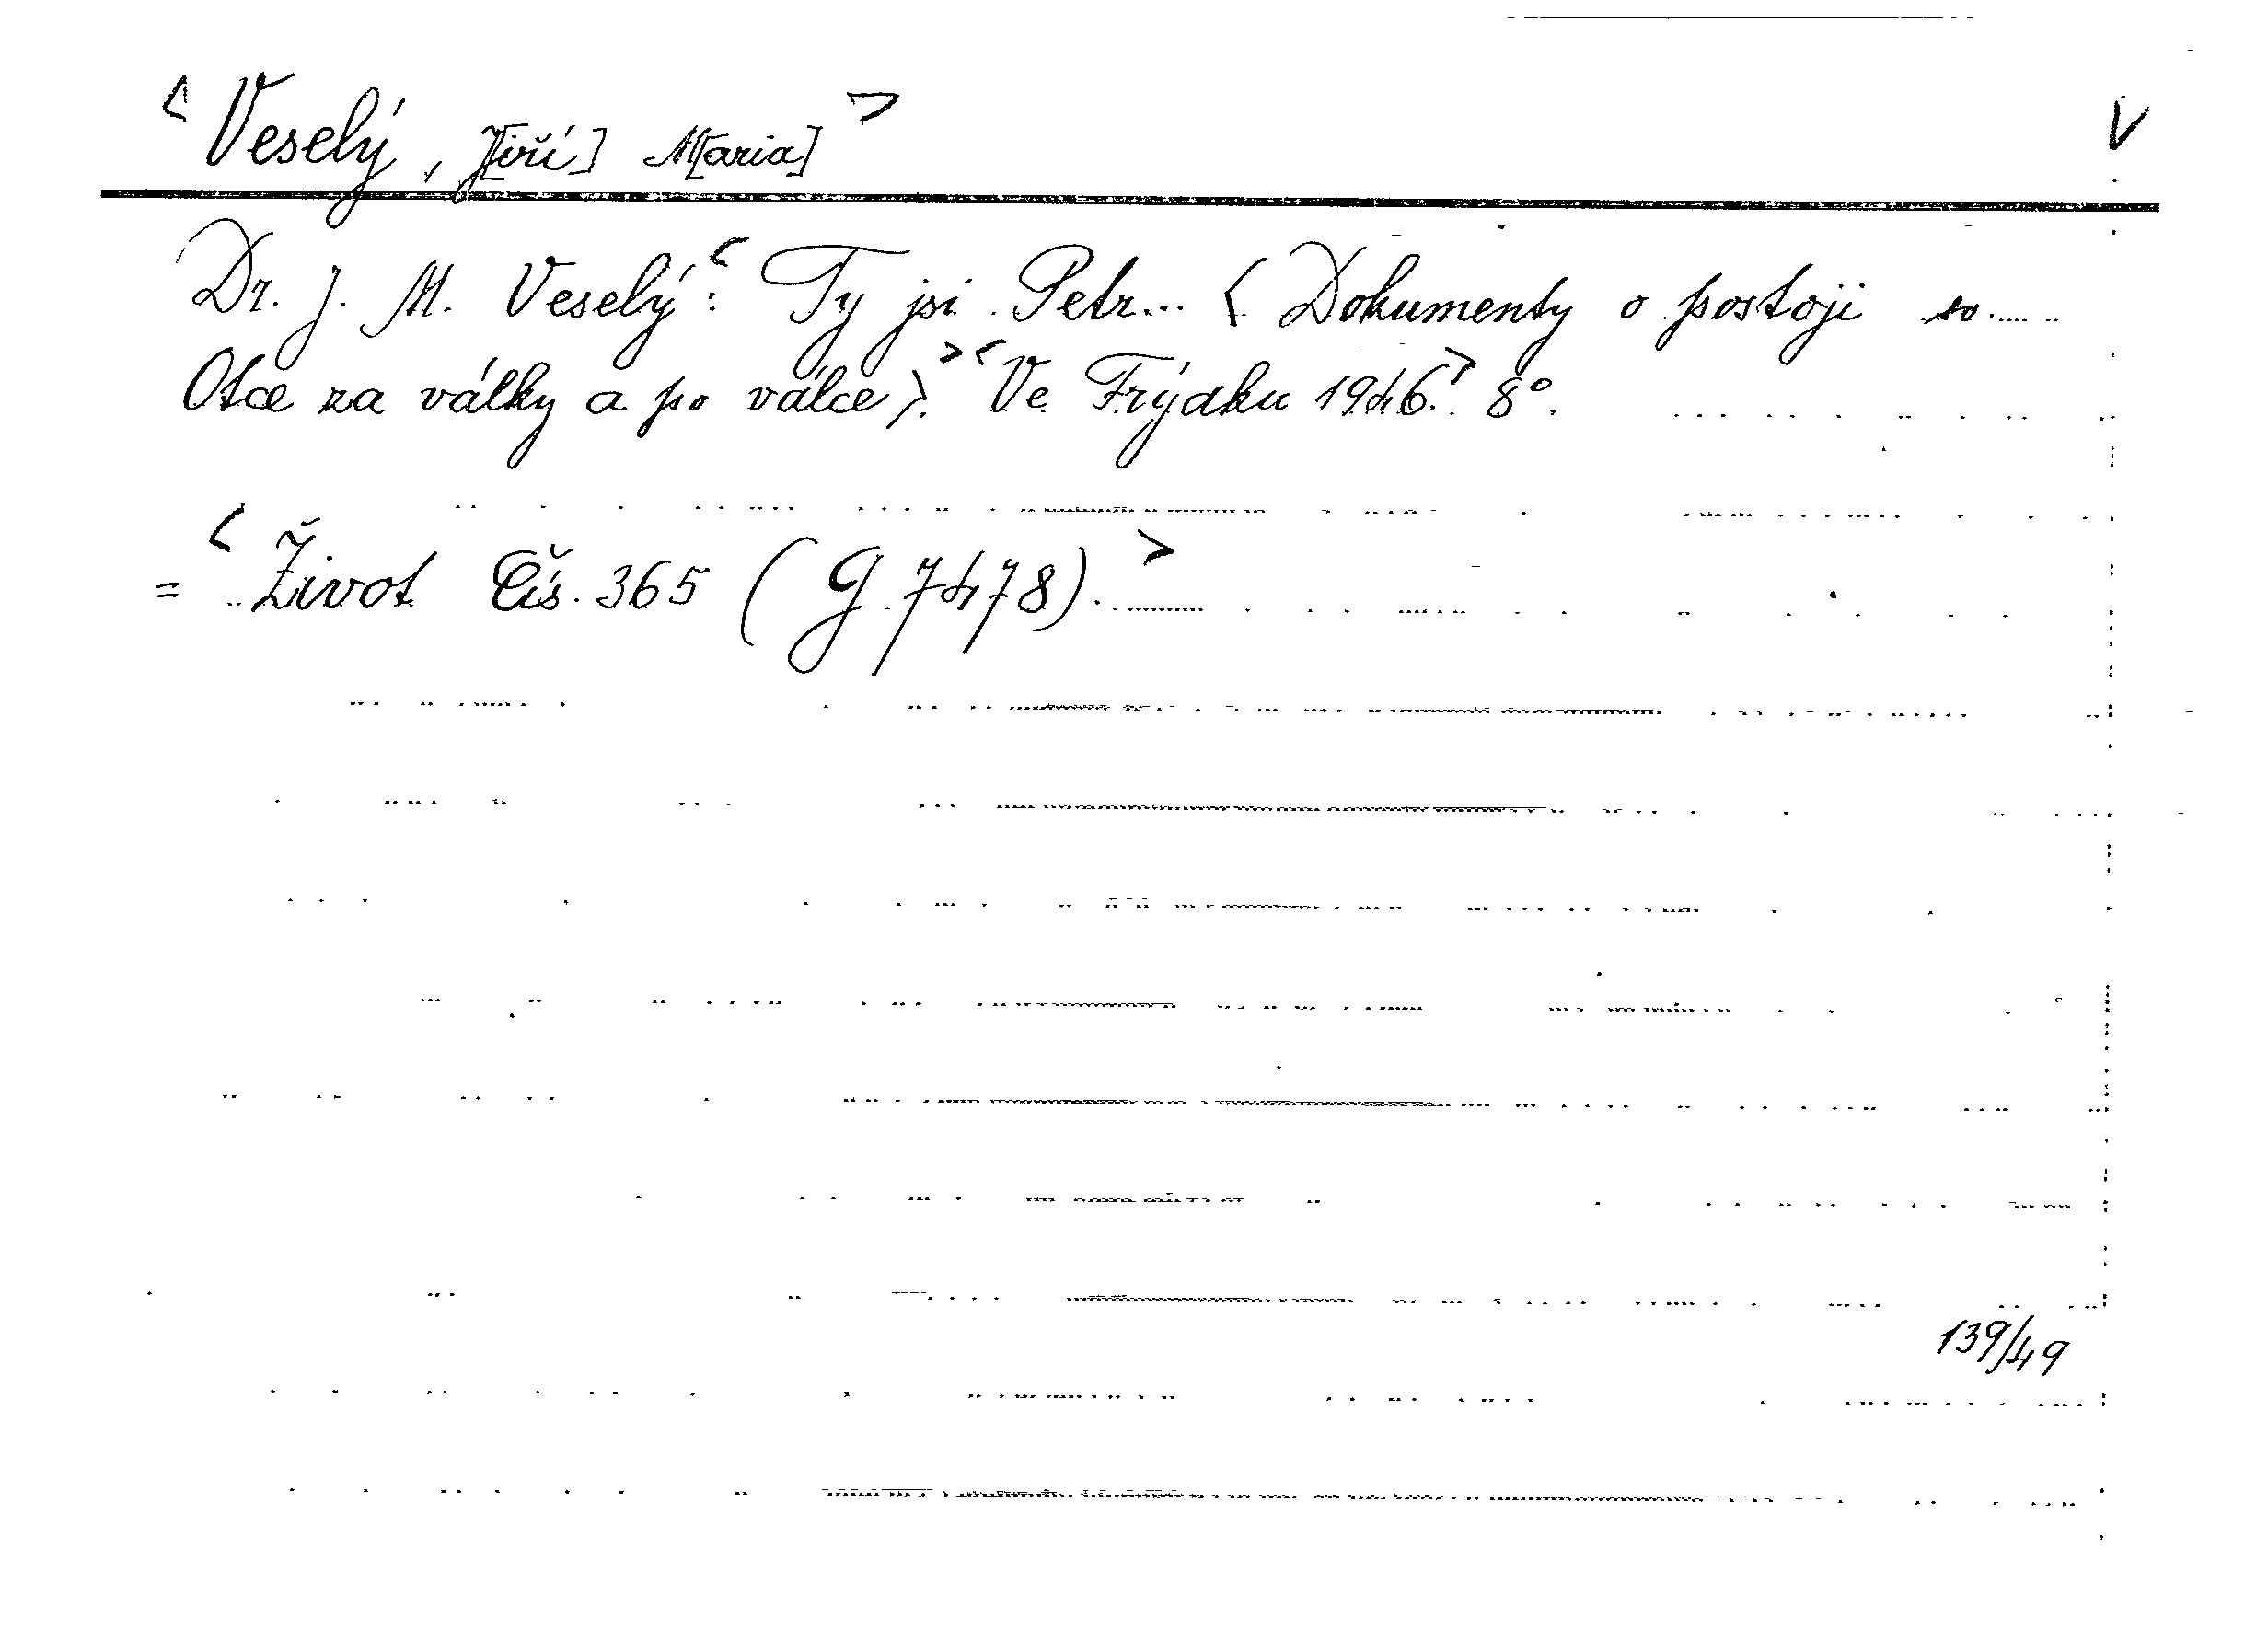 < Veselý, J[iří] M[aria] > V
Dr. J. M. Veselý: < Ty jsi Petr... (Dokumenty o postoji sv.
Otce za války a po válce). > < Ve Frýdku 1946. > 8°.
= < Život Čís. 365 (G 7478). >
139/49